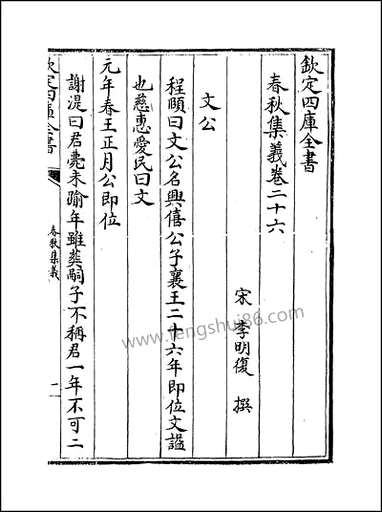 欽定四庫全書
春秋集義卷二十六
宋 李明復 撰
文公
程頤曰文公名興僖公子襄王二十六年即位文謚
也慈惠愛民曰文
元年春王正月公即位
謝湜曰君薨未踰年雖葬嗣子不稱君一年不可二
欽定四庫全書
春秋集義
一
www.fengshui86.com